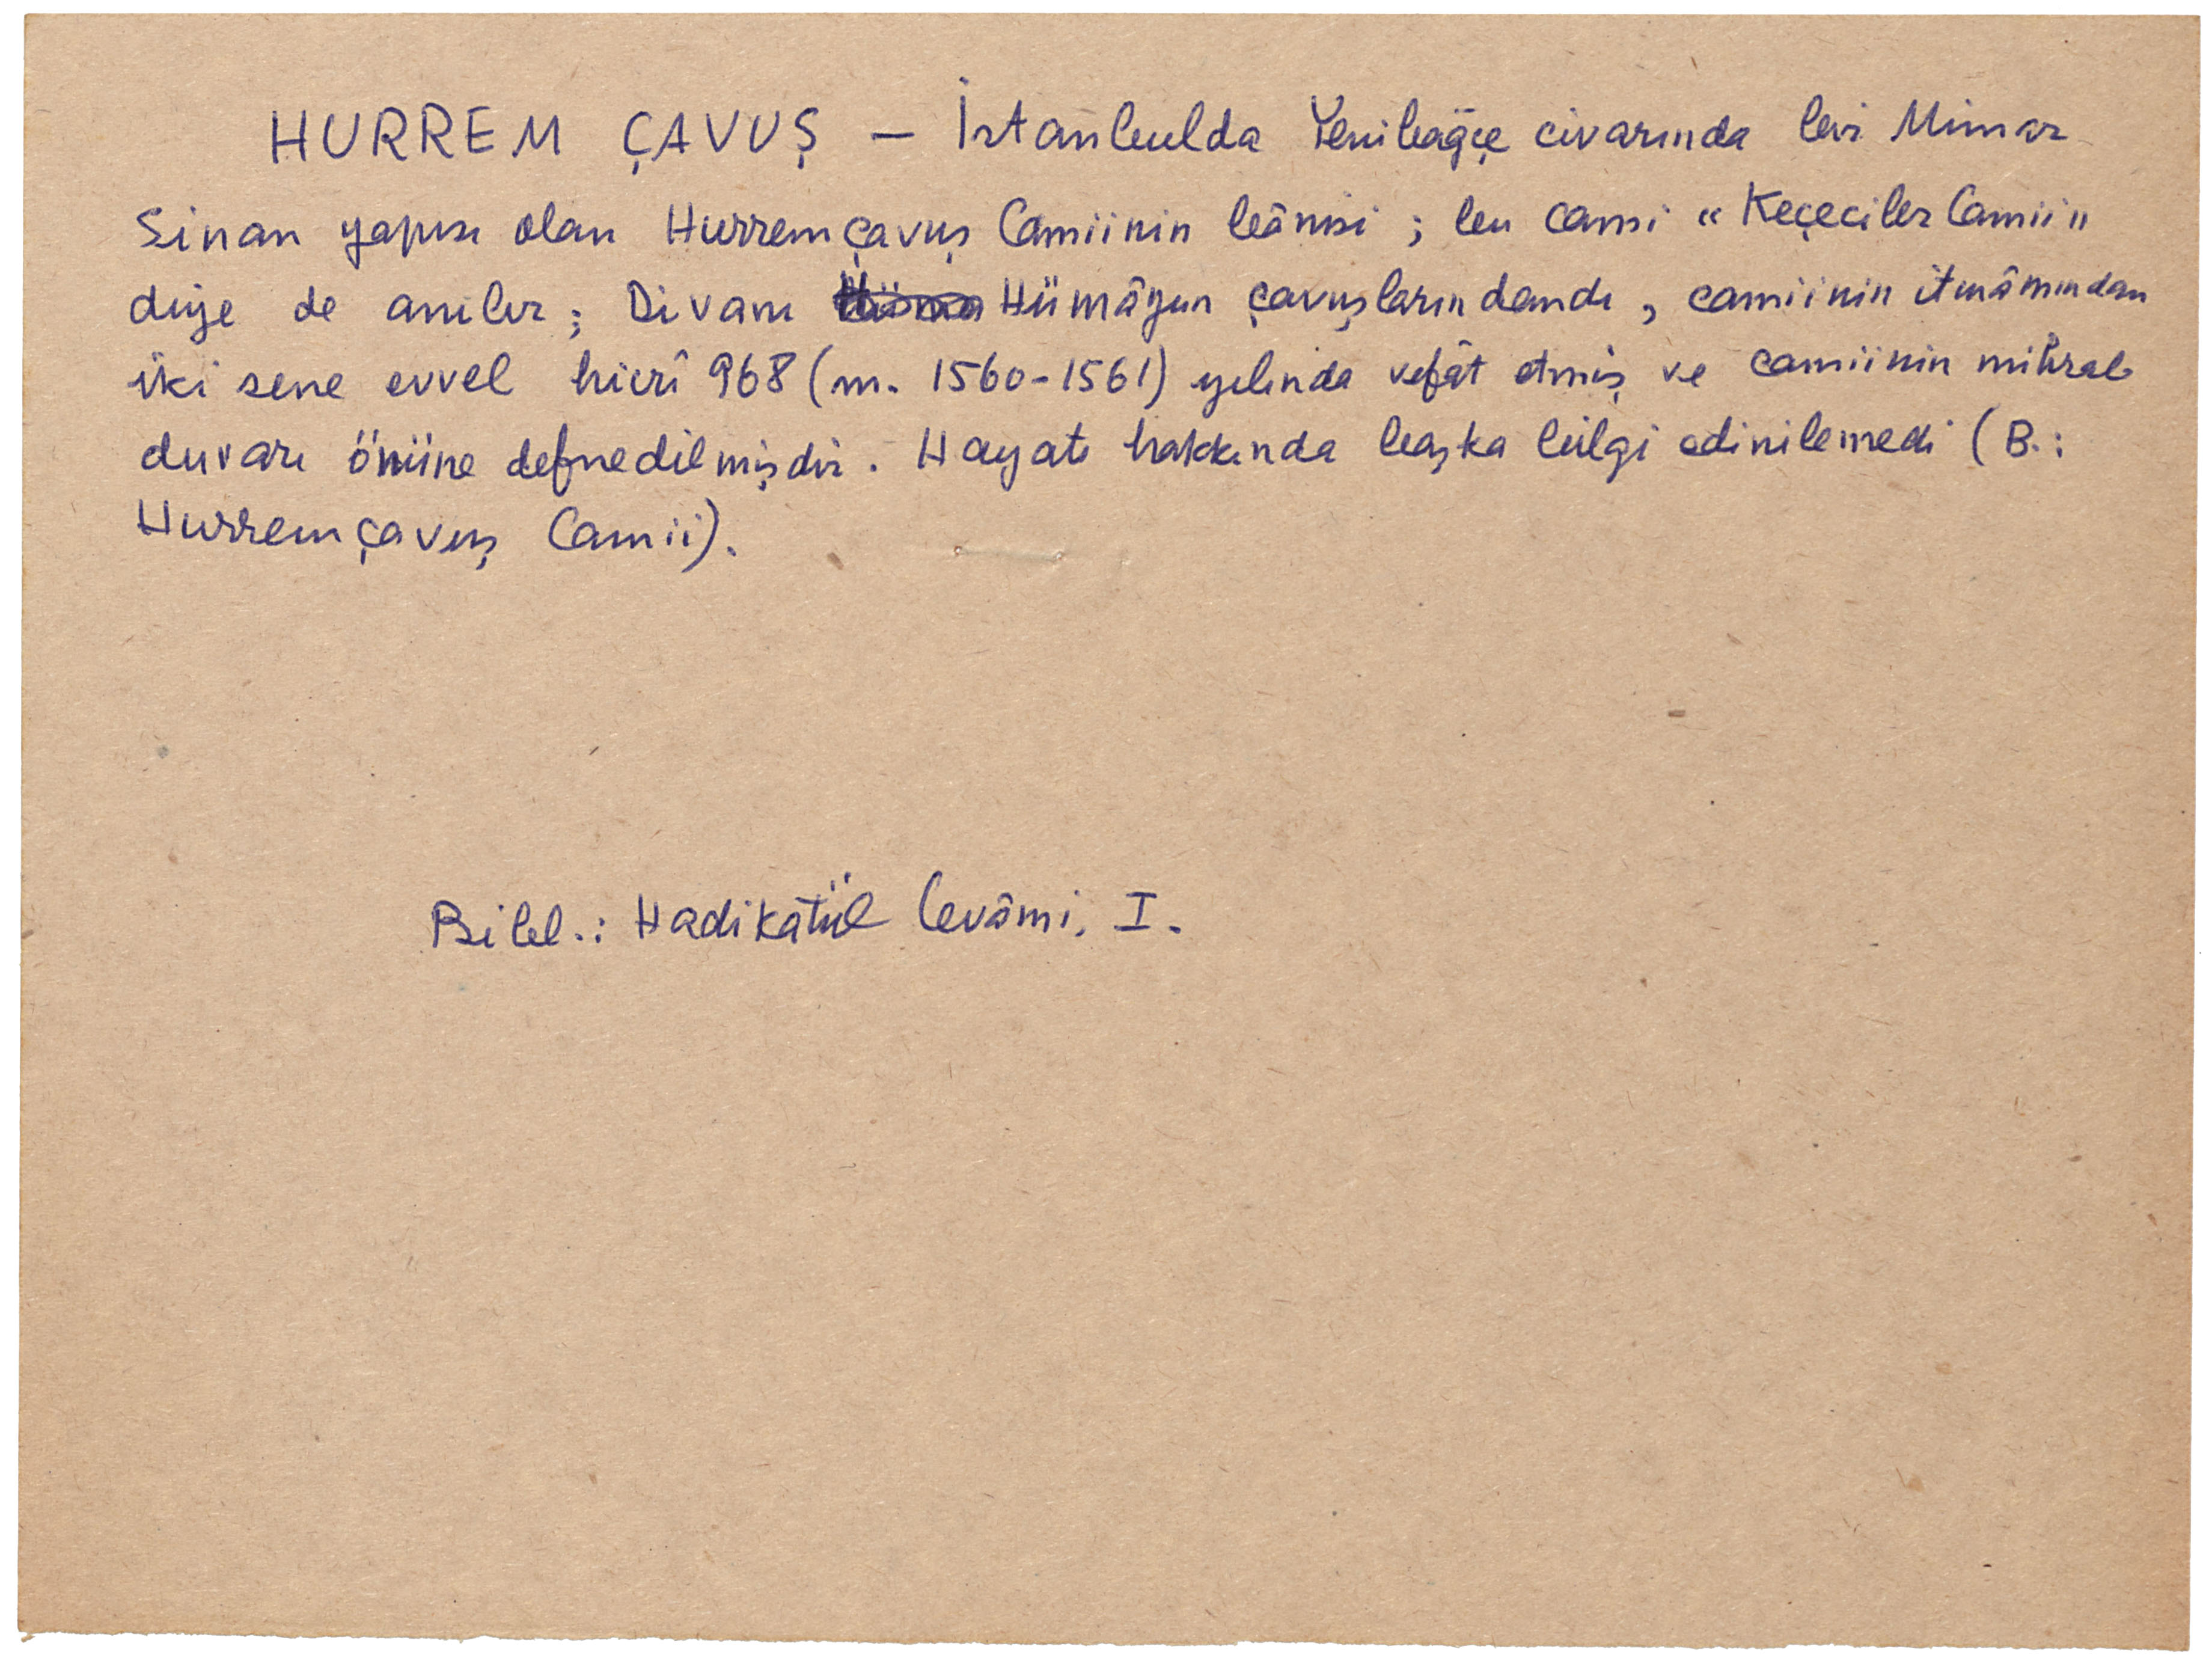 HURREM ÇAVUŞ — İstanbulda Yenibağçe civarında bir Mimar
Sinan yapısı olan Hurremçavuş Camiinin bânisi ; bu cami « Keçeciler Camii »
diye de anılır ; Divanı Hümâyun çavuşlarındandı , camiinin itmâmından
iki sene evvel hicrî 968 (m. 1560-1561) yılında vefât etmiş ve camiinin mihrab
duvarı önüne defnedilmişdir . Hayatı hakkında başka bilgi edinilemedi (B.:
Hurremçavuş Camii).
Bibl.: Hadikatül Cevâmi, I.